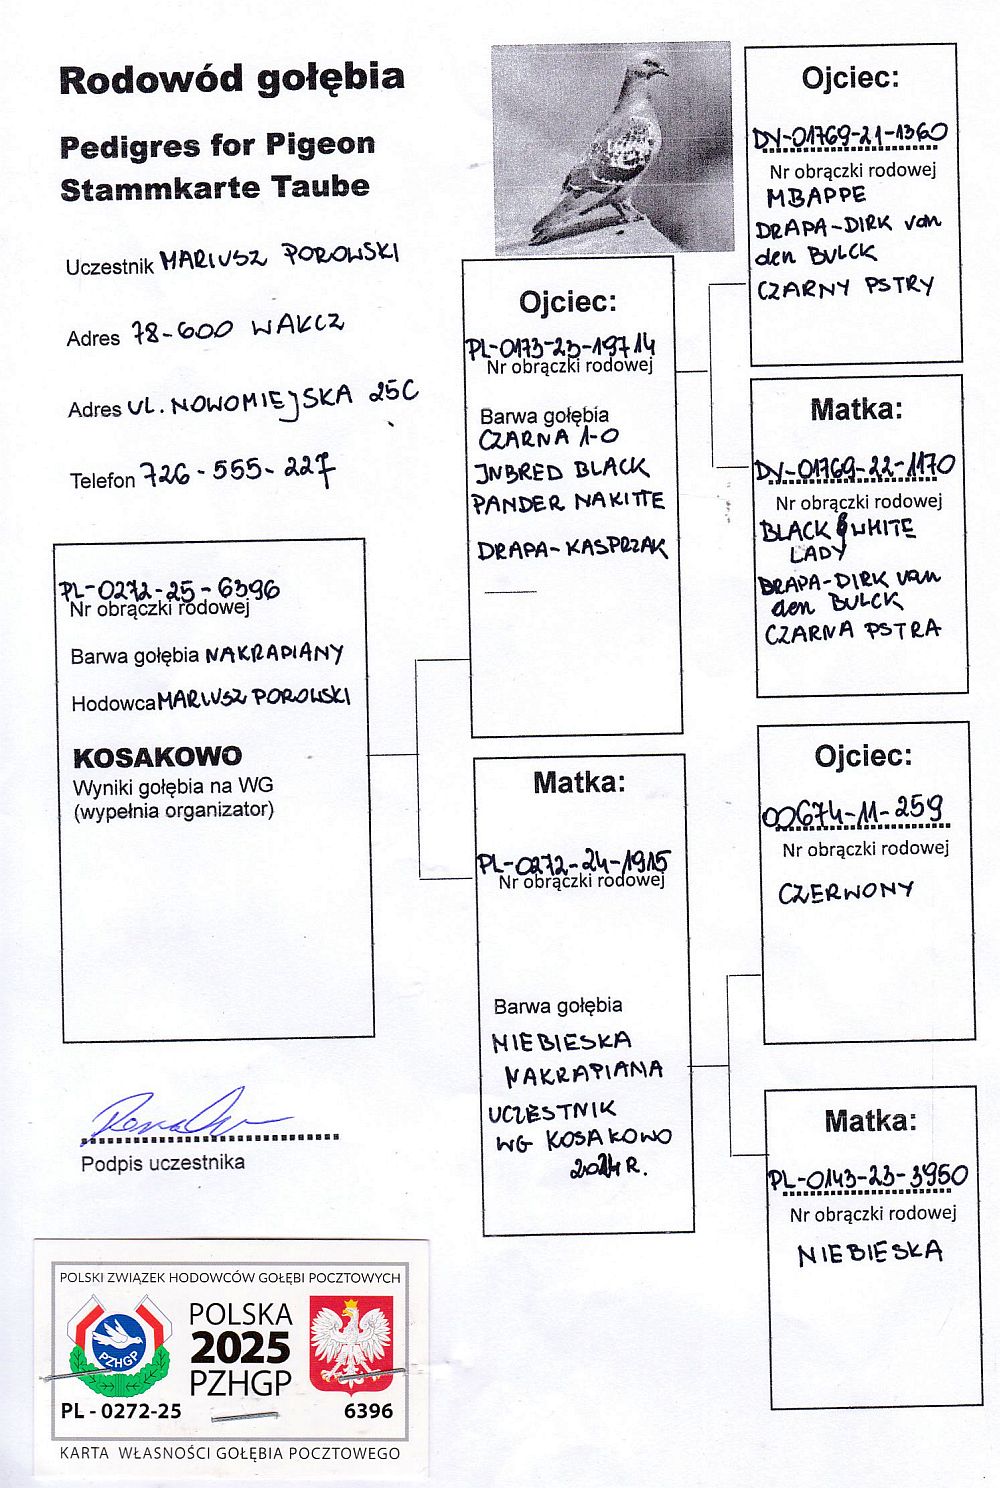 Rodowód gołębia
Pedigres for Pigeon
Stammkarte Taube
Uczestnik MARIUSZ POROWSKI
Adres 78-600 WAŁCZ
Adres UL. NOWOMIEJSKA 25C
Telefon 726-555-227
PL-0272-25-6396
Nr obrączki rodowej
Barwa gołębia NAKRAPIANY
Hodowca MARIUSZ POROWSKI
KOSAKOWO
Wyniki gołębia na WG
(wypełnia organizator)
Podpis uczestnika
Ojciec:
PL-0173-23-19714
Nr obrączki rodowej
Barwa gołębia
CZARNA 1-0
INBRED BLACK
PANDER NAKITTE
DRAPA-KASPRZAK
Matka:
PL-0272-24-1915
Nr obrączki rodowej
Barwa gołębia
NIEBIESKA
NAKRAPIANA
UCZESTNIK
WG KOSAKOWO
2024R.
Ojciec:
DV-01769-21-1360
Nr obrączki rodowej
MBAPPE
DRAPA-DIRK van
den BULCK
CZARNY PSTRY
Matka:
DV-01769-22-1170
Nr obrączki rodowej
BLACK WHITE
LADY
DRAPA-DIRK van
den BULCK
CZARNA PSTRA
Ojciec:
00674-11-259
Nr obrączki rodowej
CZERWONY
Matka:
PL-0143-23-3950
Nr obrączki rodowej
NIEBIESKA
POLSKI ZWIĄZEK HODOWCÓW GOŁĘBI POCZTOWYCH
PZHGP
POLSKA
2025
PZHGP
PL - 0272-25
6396
KARTA WŁASNOŚCI GOŁĘBIA POCZTOWEGO